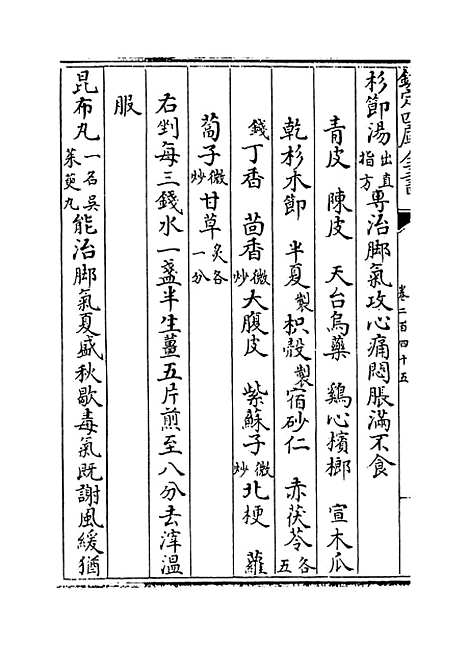 欽定四庫全書
卷二百四十五
杉節湯出直指方專治脚氣攻心痛悶脹滿不食
青皮 陳皮 天台烏藥 鷄心檳榔 宣木瓜
乾杉木節 半夏製 枳殼製 宿砂仁 赤茯苓各五
錢 丁香 茴香微炒 大腹皮 紫蘇子微炒 北梗 蘿
蔔子微炒 甘草炙各一分
右剉每三錢水一盞半生薑五片煎至八分去滓温
服
昆布丸一名吳茱萸丸能治脚氣夏盛秋歇毒氣既謝風緩猶